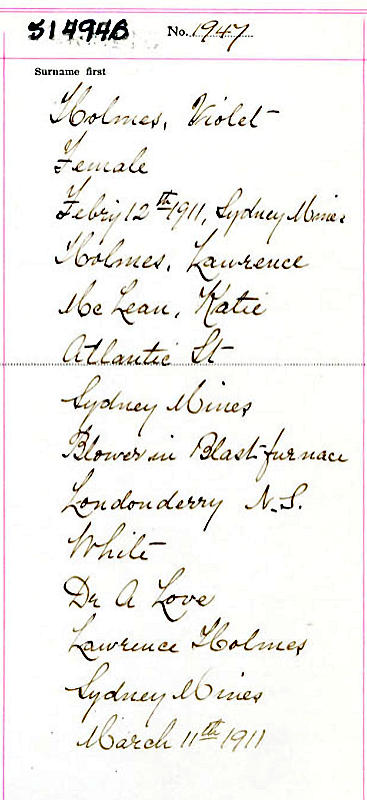 514946 No. 1947
Surname first
Holmes, Violet
Female
Febry 12th 1911, Sydney Mines
Holmes, Lawrence
McLean, Katie
Atlantic St
Sydney Mines
Blower in Blast furnace
Londonderry N.S.
White
Dr A Love
Lawrence Holmes
Sydney Mines
March 11th 1911